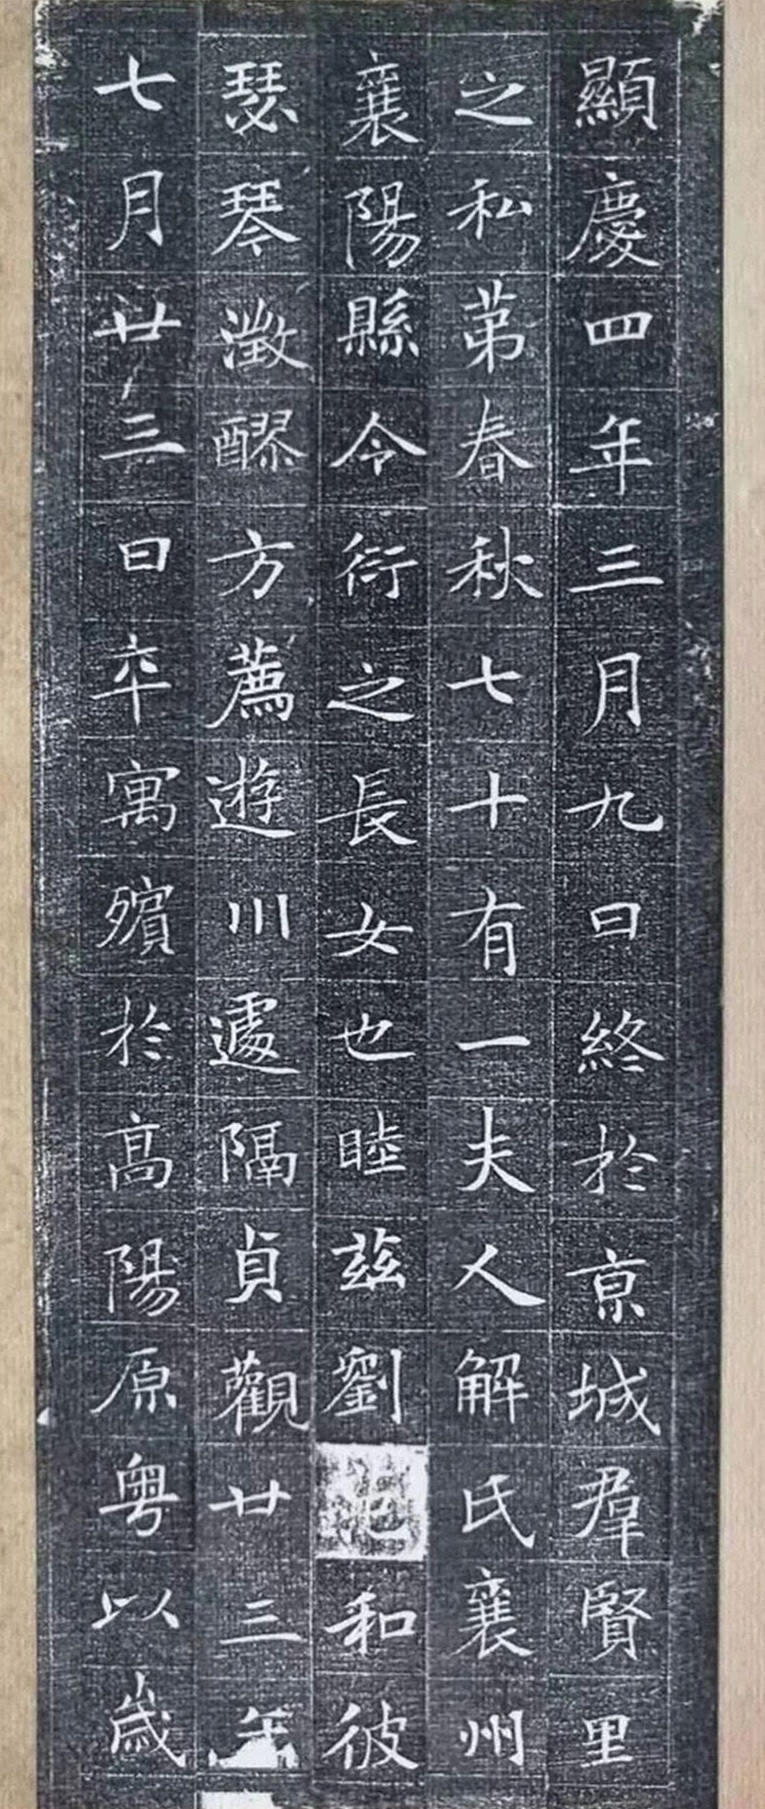 顯慶四年三月九日終於京城羣賢里
之私苐春秋七十有一夫人解氏襄州
襄陽縣令衍之長女也睦兹劉和彼
瑟琴澂醪方薦遊川遽隔貞觀廿三年
七月廿三日卒寓殯於高陽原粤以歲